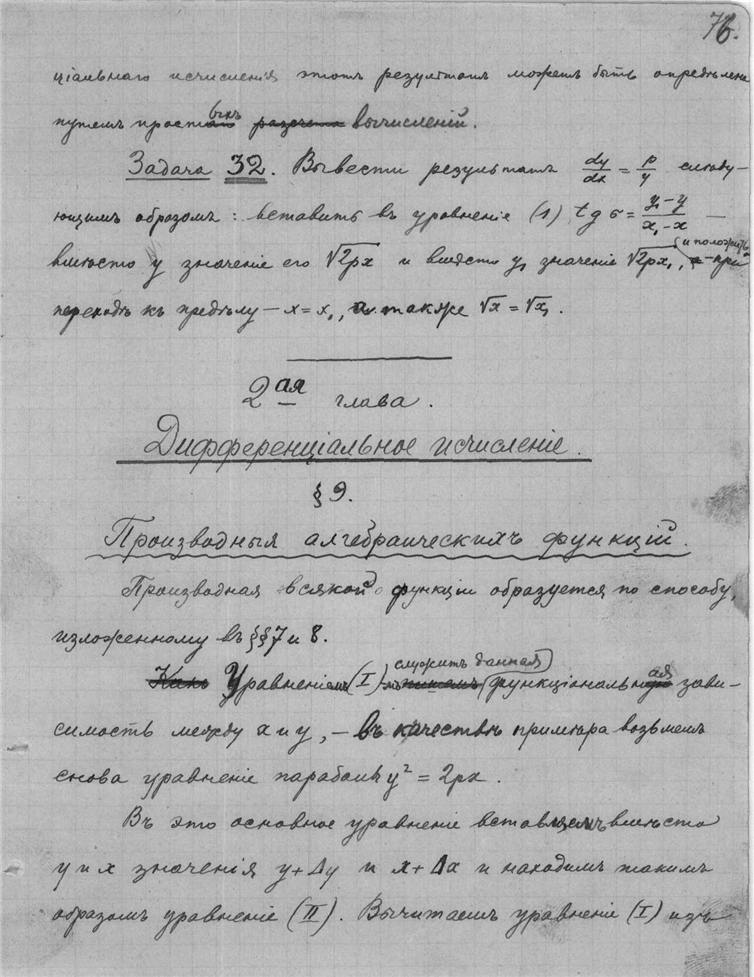 76.
ціальнаго исчисленія этотъ результатъ можетъ быть опредѣленъ
путемъ простыхъ вычисленій.
Задача 32. Вывести результатъ dy/dx = p/y слѣду-
ющимъ образомъ: вставить въ уравненіе (1) tg σ = y₁-y/x₁-x —
вмѣсто y значеніе его √2px и вмѣсто y₁ значеніе √2px₁, и положить - при
переходѣ къ предѣлу - x = x₁, а также √x = √x₁.
2ая глава.
Дифференціальное исчисленіе.
§ 9.
Производныя алгебраическихъ функцій.
Производная всякой функціи образуется по способу,
изложенному въ §§ 7 и 8.
Уравненіемъ (I) служитъ данная функціональная зави-
симость между x и y, - въ качествѣ примѣра возьмемъ
снова уравненіе параболы y² = 2px.
Въ это основное уравненіе вставляемъ вмѣсто
y и x значенія y + Δy и x + Δx и находимъ такимъ
образомъ уравненіе (II). Вычитаемъ уравненіе (I) изъ